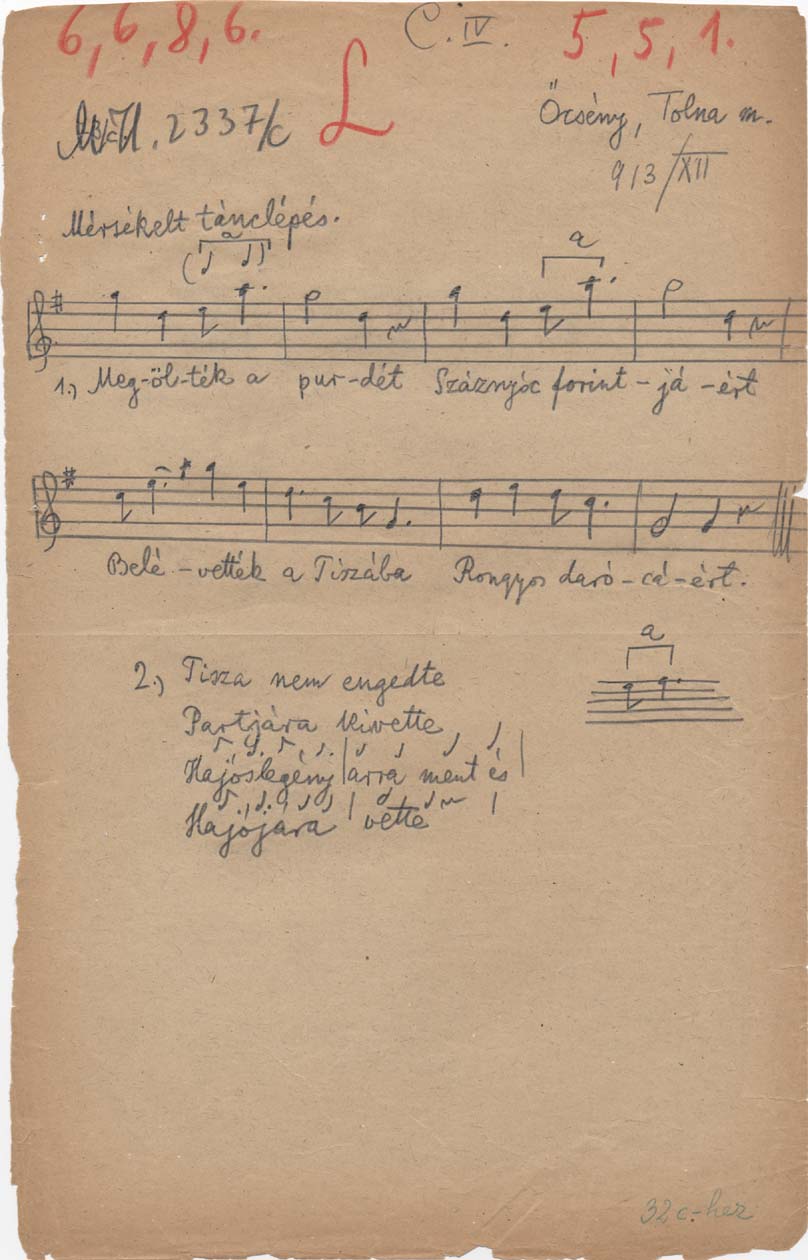 6, 6, 8, 6. C. IV. 5, 5, 1.
2337/c L Őcsény, Tolna m.
913/XII
Mérsékelt tánclépés.
a
a
1.) Meg-öl-ték a pur-dét Száznyóc forint-já-ért
Belé-vették a Tiszába Rongyos daró-cá-ért.
a
2.) Tisza nem engedte
Partjára kivette
Hajóslegény arra ment és
Hajójara vette
32c-hez